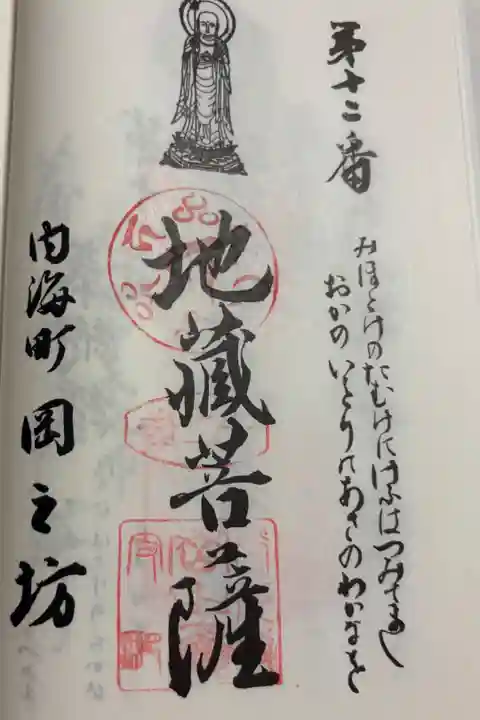 第十二番
みほとけのたむけにけふはつみてまし
おかのいほりのあさのわかなを
地蔵菩薩
内海町 岡之坊